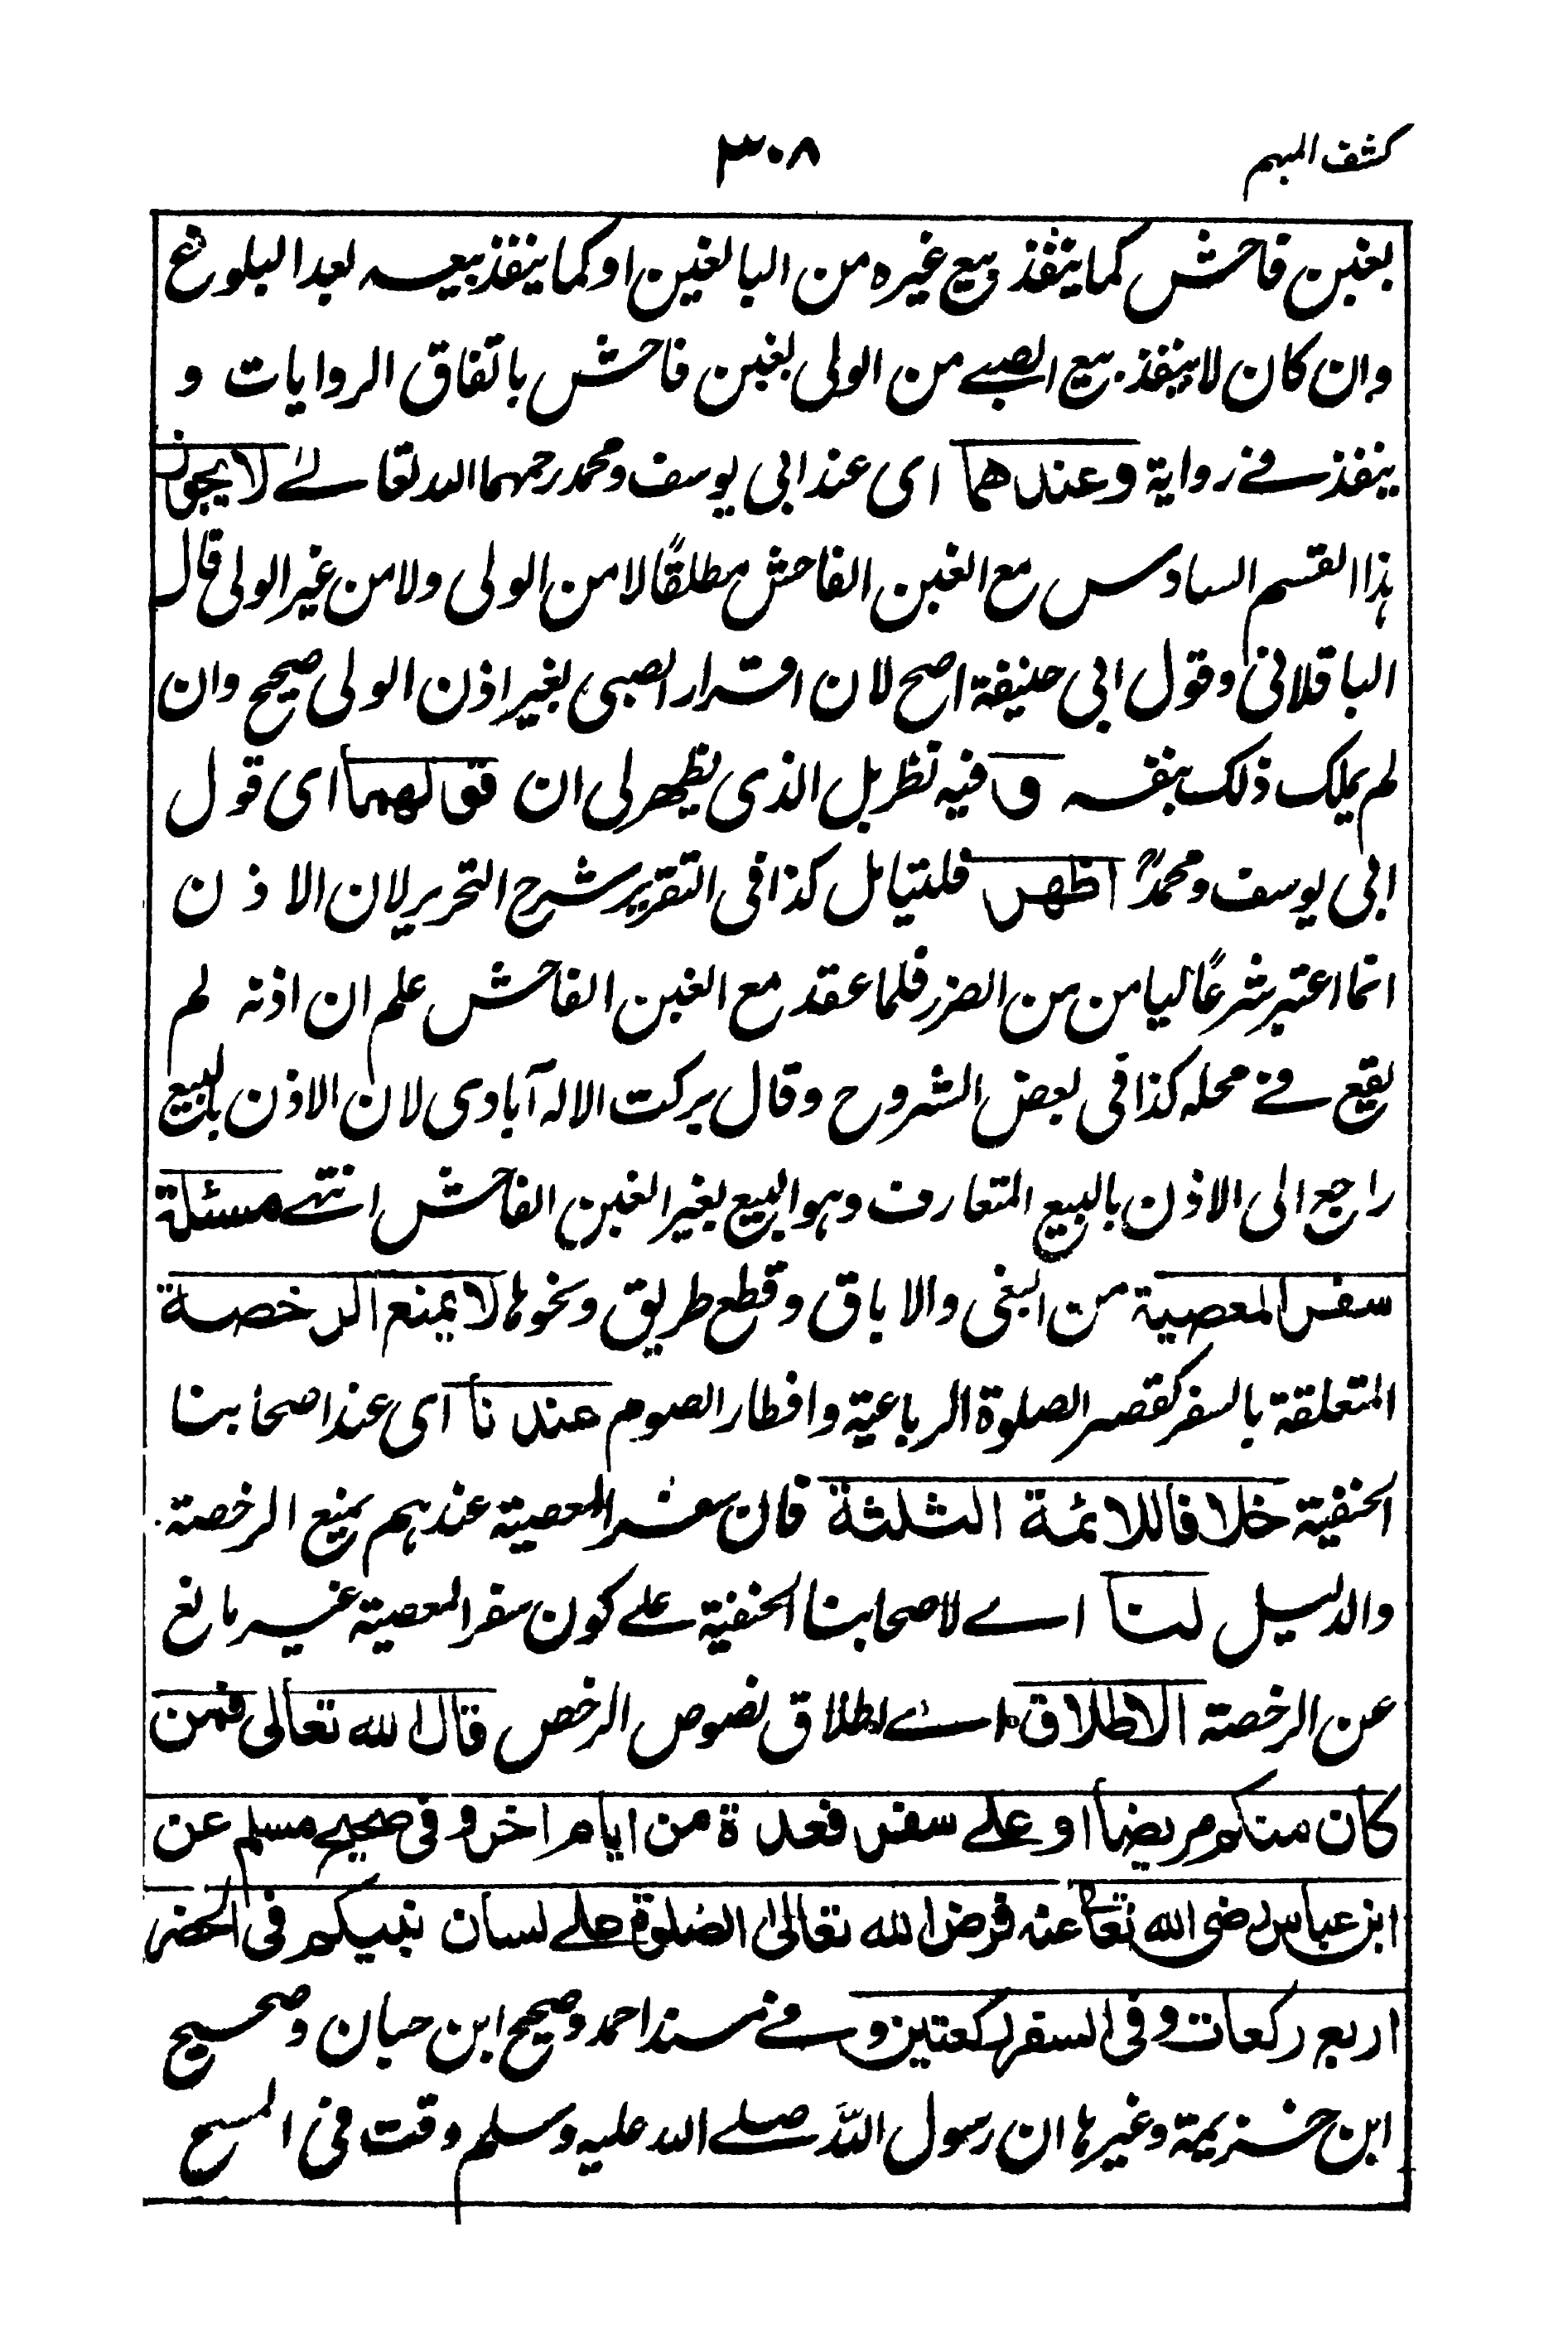 كشف المبهم
٣٠٨
بغبن فاحش كما ينفذ بيع غيره من البالغين او كما ينفذ بيعه بعد البلوغ
وان كان لا ينفذ بيع الصبے من الولى بغبن فاحش باتفاق الروايات و
ينفذ فے رواية وعندهما اى عند ابى يوسف ومحمد رحمهما الله تعالےٰ لا يجوز
هذا القسم السادس مع الغبن الفاحش مطلقًا لا من الولى ولا من غير الولى قال
الباقلانى وقول ابى حنيفة اصح لان اقرار الصبى بغير اذن الولى صحيح وان
لم يملك ذلك بنفسه و فيه نظر بل الذى يظهر لى ان قولهما اى قول
ابى يوسف ومحمدؒ اظهر فليتامل كذا فى التقرير شرح التحرير لان الاذن
انما اعتبر شرعًا ليامن من الضرر فلما عقد مع الغبن الفاحش علم ان اذنه لم
يقع فے محله كذا فى بعض الشروح وقال بركت الاله آبادى لان الاذن بالبيع
راجع الى الاذن بالبيع المتعارف وهو البيع بغير الغبن الفاحش انتهے مسئلة
سفر المعصية من البغى والاباق وقطع طريق ونحوها لا يمنع الرخصة
المتعلقة بالسفر كقصر الصلوة الرباعية وافطار الصوم عندنا اى عند اصحابنا
الحنفية خلافا للائمة الثلثة فان سفر المعصية عندهم يمنع الرخصة
والدليل لنا اے لاصحابنا الحنفية علے كون سفر المعصية غير مانع
عن الرخصة الاطلاق اے اطلاق نصوص الرخص قال الله تعالى فمن
كان منكم مريضا او علے سفر فعدة من ايام اخر و فى صحيح مسلم عن
ابن عباس رضى الله تعالىٰ عنه فرض الله تعالى الصلوة علے لسان نبيكم فى الحضر
اربع ركعات وفى السفر ركعتين و فے مسند احمد وصحيح ابن حبان وصحيح
ابن خزيمة وغيرها ان رسول الله صلے الله عليه وسلم وقت فى المسح